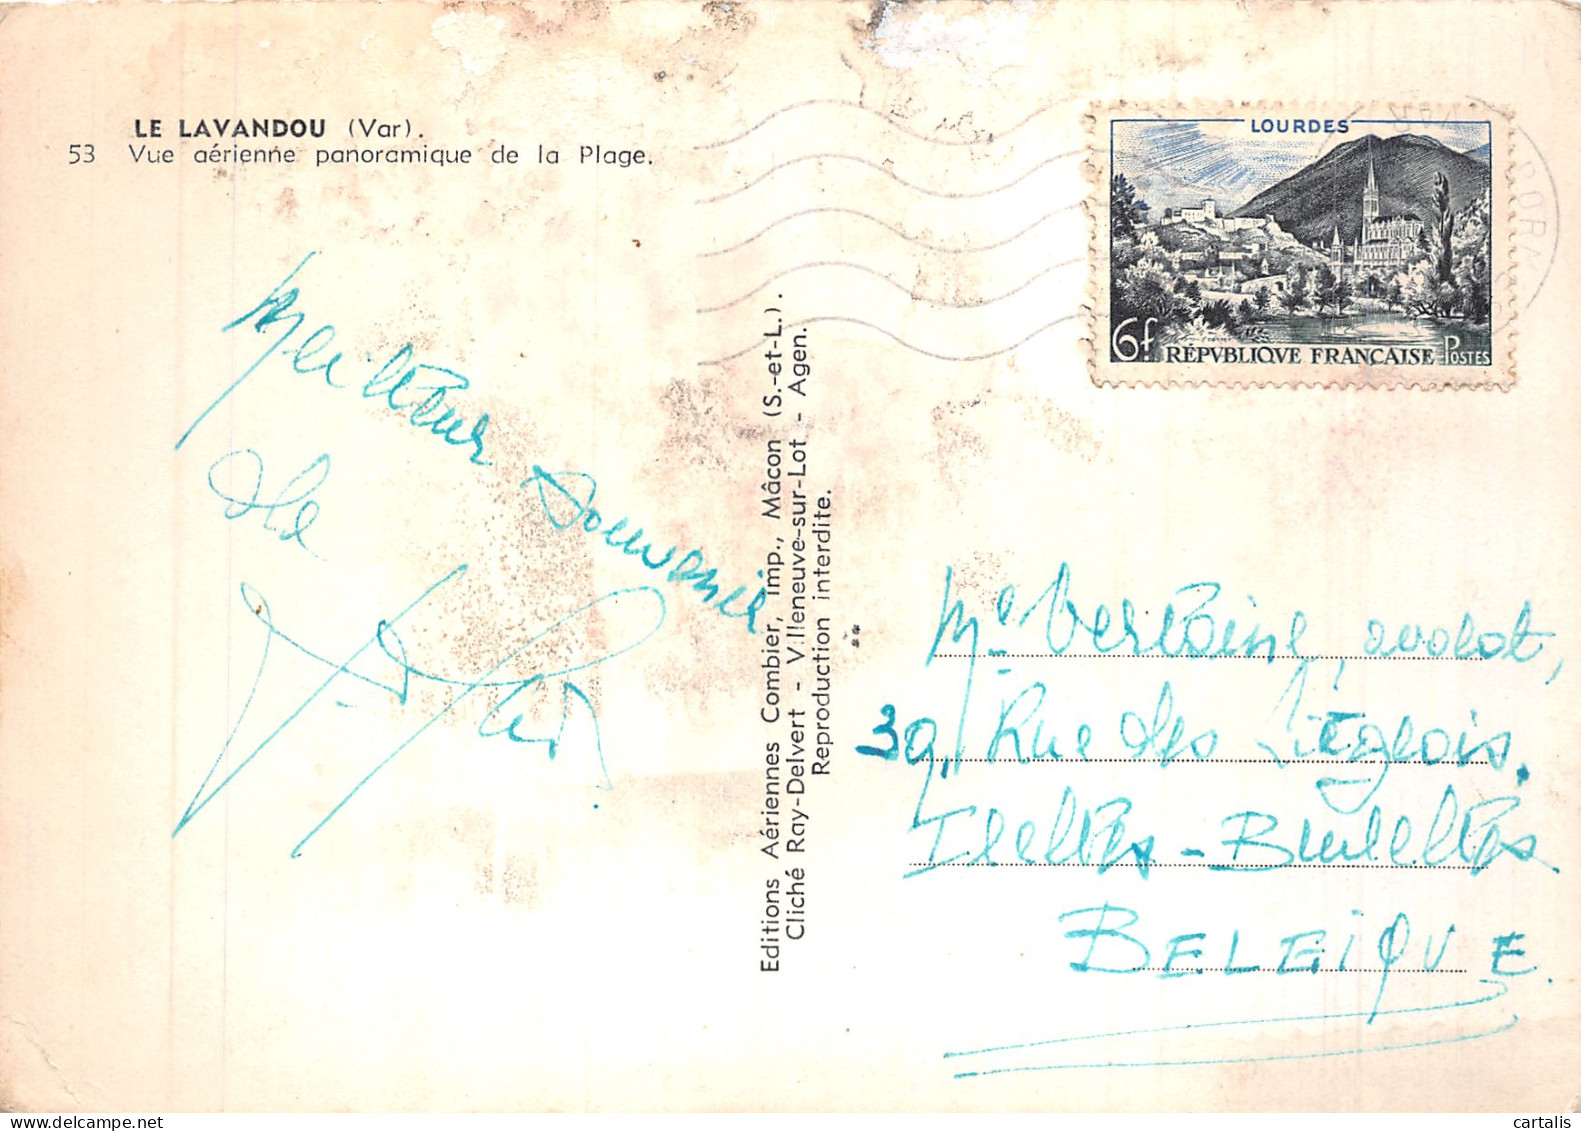 LE LAVANDOU (Var).
53 Vue aérienne panoramique de la Plage.
LOURDES
6f RÉPVBLIQVE FRANÇAISE POSTES
Meilleur souvenir
de
Editions Aériennes Combier, imp., Mâcon (S.-et-L.).
Cliché Ray-Delvert - Villeneuve-sur-Lot - Agen.
Reproduction interdite.
Me Verlaine, avocat,
39, Rue des Liégeois.
Ixelles - Bruxelles
BELGIQUE.
cartalis